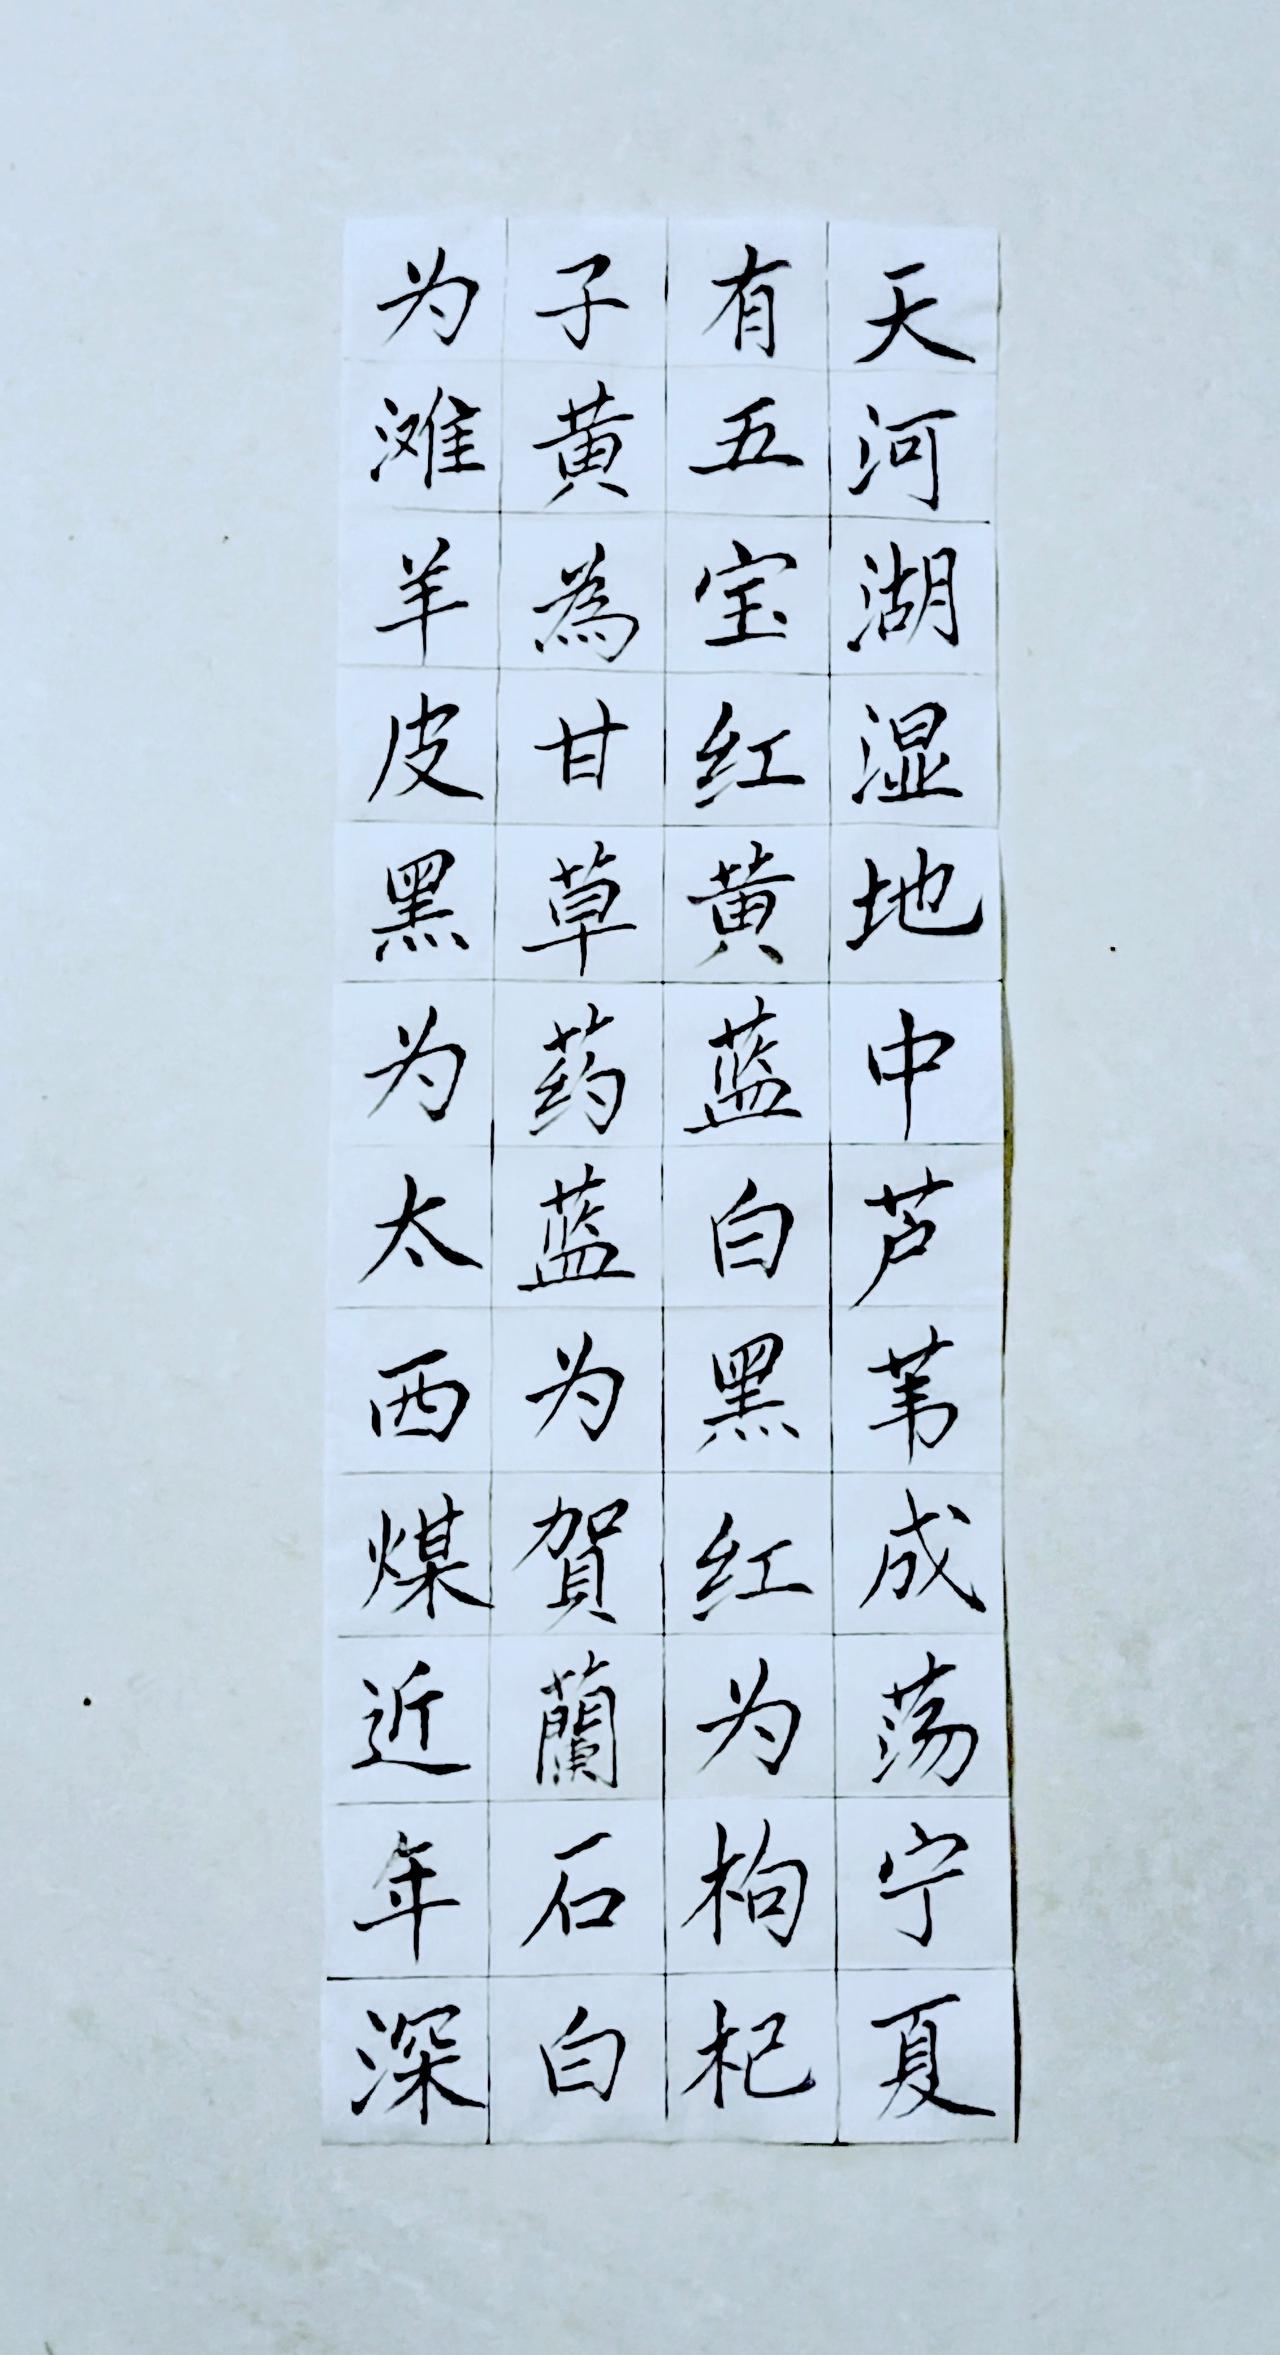 天河湖湿地中芦苇成荡宁夏
有五宝红黄蓝白黑红为枸杞
子黄為甘草药蓝为贺蘭石白
为滩羊皮黑为太西煤近年深